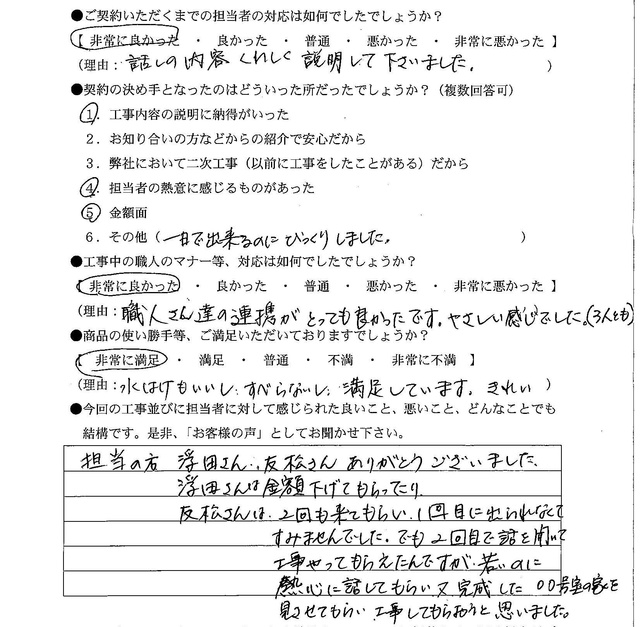 ●ご契約いただくまでの担当者の対応は如何でしたでしょうか？
【 非常に良かった ・ 良かった ・ 普通 ・ 悪かった ・ 非常に悪かった 】
(理由：話しの内容くわしく説明して下さいました。)
●契約の決め手となったのはどういった所だったでしょうか？（複数回答可）
1．工事内容の説明に納得がいった
2．お知り合いの方などからの紹介で安心だから
3．弊社において二次工事（以前に工事をしたことがある）だから
4．担当者の熱意に感じるものがあった
5．金額面
6．その他（一日で出来るのにびっくりしました。）
●工事中の職人のマナー等、対応は如何でしたでしょうか？
【 非常に良かった ・ 良かった ・ 普通 ・ 悪かった ・ 非常に悪かった 】
(理由：職人さん達の連携がとっても良かったです。やさしい感じでした。(3人とも)
●商品の使い勝手等、ご満足いただいておりますでしょうか？
【 非常に満足 ・ 満足 ・ 普通 ・ 不満 ・ 非常に不満 】
(理由：水はけもいいし、すべらないし、満足しています。きれい)
●今回の工事並びに担当者に対して感じられた良いこと、悪いこと、どんなことでも
結構です。是非、「お客様の声」としてお聞かせ下さい。
担当の方 浮田さん、友松さんありがとうございました。
浮田さんは金額下げてもらったり
友松さんは、2回も来てもらい、1回目に出られなくて
すみませんでした。でも2回目で話を聞いて
工事やってもらえたんですが、若いのに
熱心に話してもらい又、完成した○○号室の家を
見させてもらい、工事してもらおうと思いました。